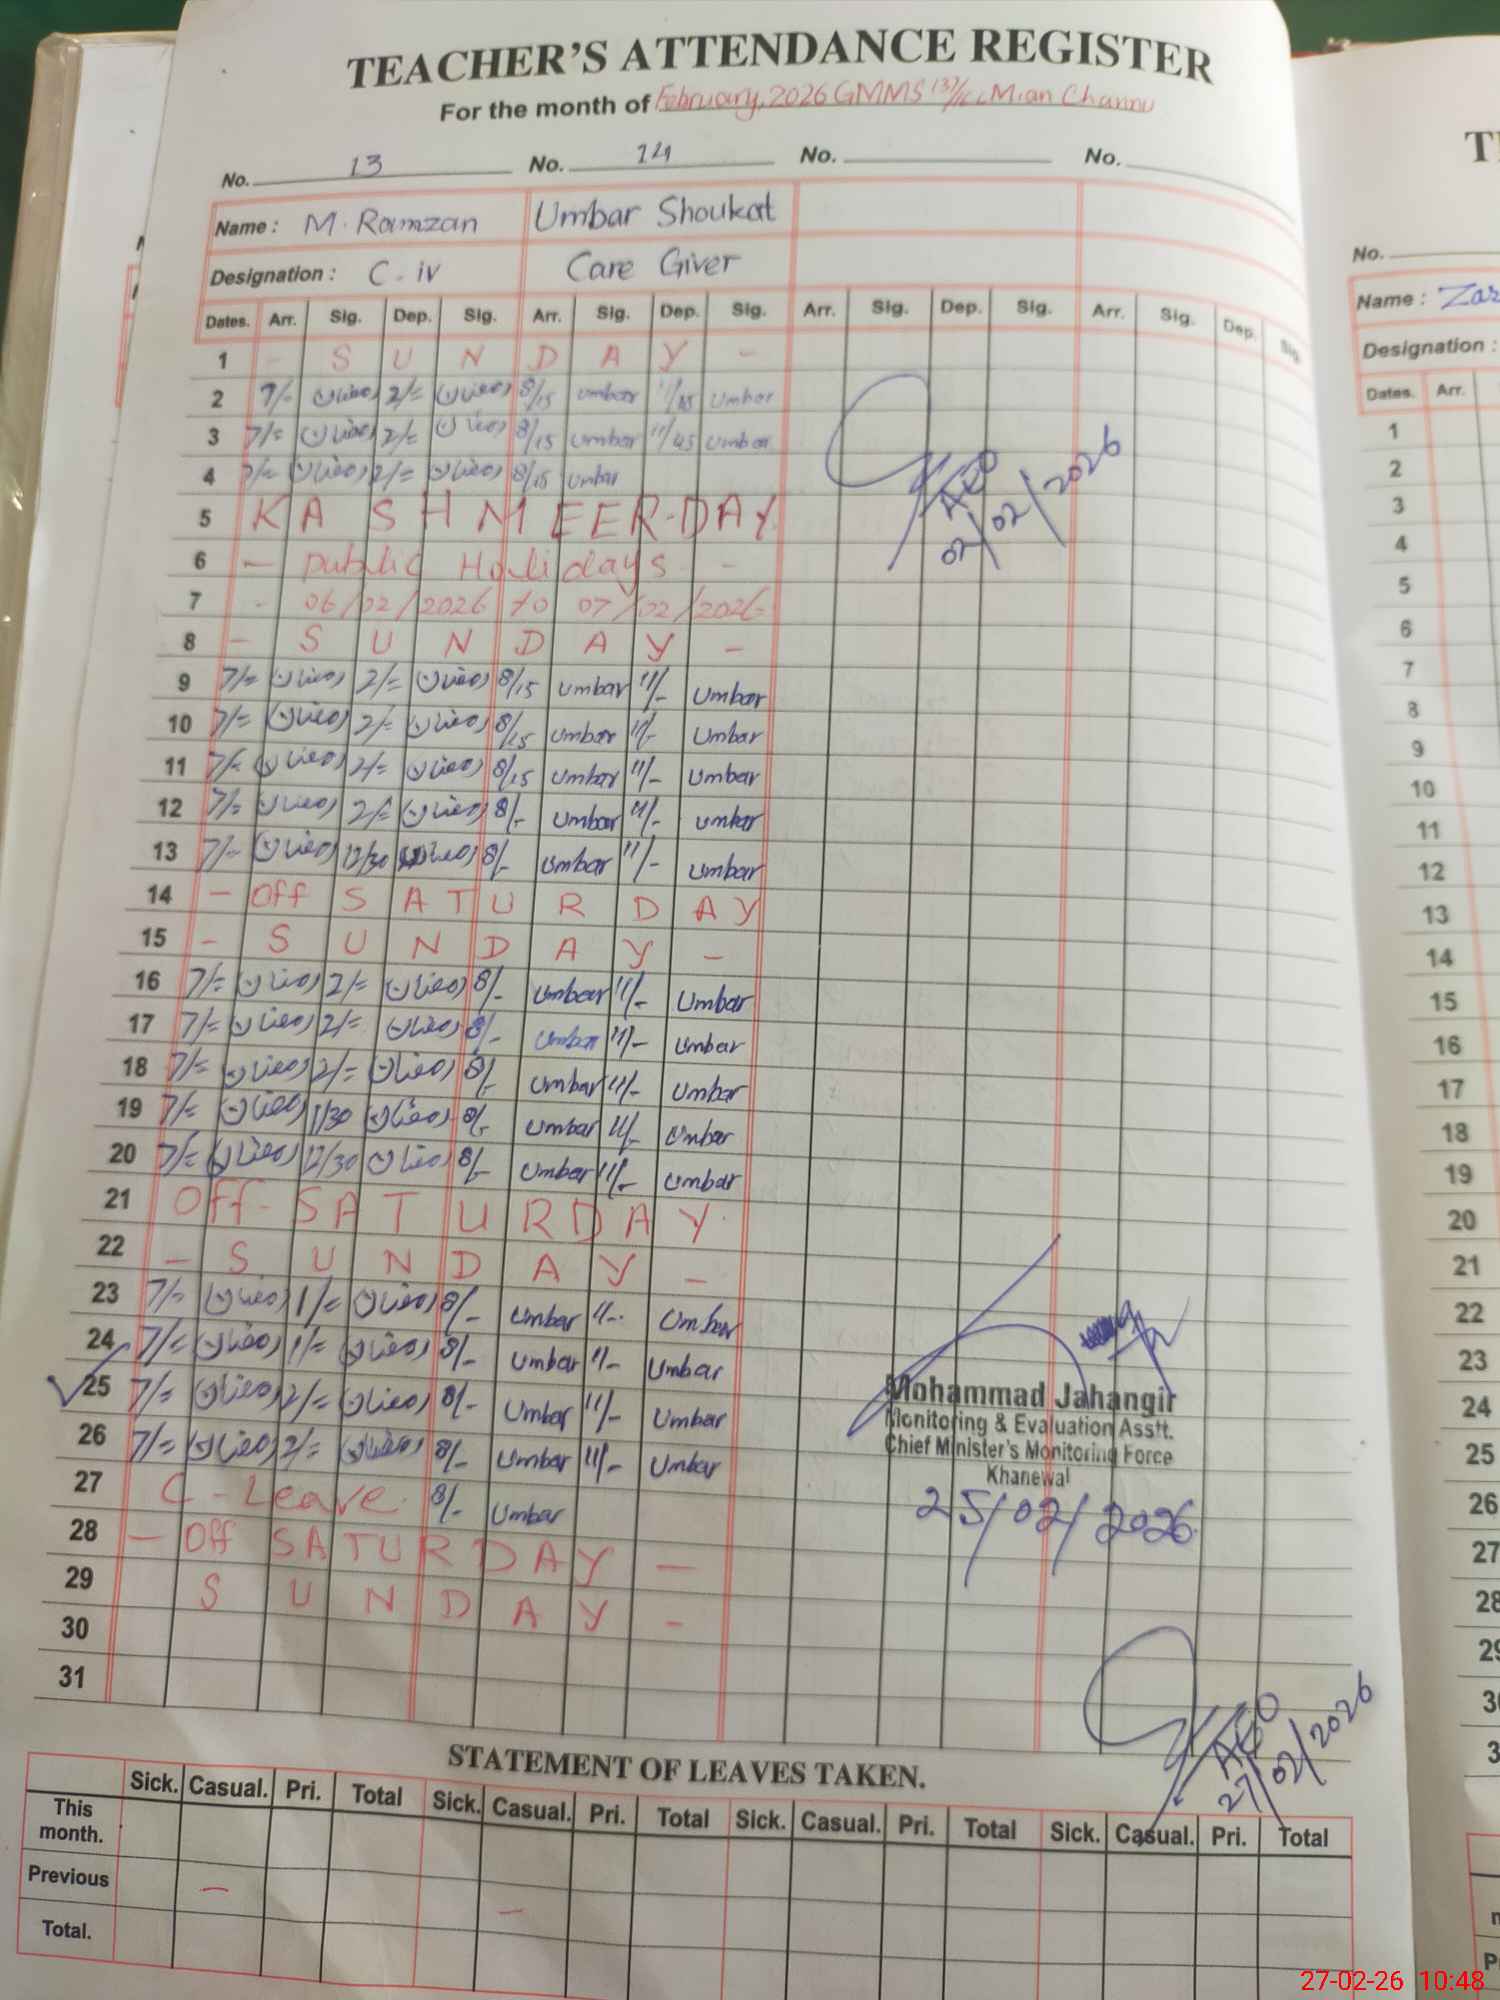 TEACHER'S ATTENDANCE REGISTER
For the month of February, 2026 GMMS Mian Channu
No. 13 No. 14 No. No.
Name : M. Ramzan Umbar Shoukat
Designation : C-iv Care Giver
Dates. Arr. Sig. Dep. Sig. Arr. Sig. Dep. Sig. Arr. Sig. Dep. Sig. Arr. Sig. Dep. Sig.
1 - S U N D A Y -
2 7/- 2/= 8/15 Umbar 11/45 Umbar
3 7/= 2/= 8/15 Umbar 11/45 Umbar
4 7/= 2/= 8/15 Umbar
5 KASHMEER-DAY
6 - Public Holidays -
7 - 06/02/2026 to 07/02/2026-
8 - S U N D A Y -
9 7/= 2/= 8/15 Umbar 11/- Umbar
10 7/= 2/= 8/15 Umbar 11/- Umbar
11 7/= 2/= 8/15 Umbar 11/- Umbar
12 7/= 2/= 8/- Umbar 11/- Umbar
13 7/- 12/30 8/- Umbar 11/- Umbar
14 - Off S A T U R D A Y
15 - S U N D A Y -
16 7/= 2/= 8/- Umbar 11/- Umbar
17 7/= 2/= 8/- Umbar 11/- Umbar
18 7/= 2/= 8/- Umbar 11/- Umbar
19 7/= 1/30 8/- Umbar 11/- Umbar
20 7/= 12/30 8/- Umbar 11/- Umbar
21 Off-SATURDAY
22 - S U N D A Y -
23 7/- 1/= 8/- Umbar 11/- Umbar
24 7/= 1/= 8/- Umbar 11/- Umbar
25 7/= 2/= 8/- Umbar 11/- Umbar
26 7/= 2/= 8/- Umbar 11/- Umbar
27 C-Leave 8/- Umbar
28 - Off SATURDAY -
29 S U N D A Y -
30
31
AEO
02/02/2026
Mohammad Jahangir
Monitoring & Evaluation Asstt.
Chief Minister's Monitoring Force
Khanewal
25/02/2026
AEO
27/02/2026
STATEMENT OF LEAVES TAKEN.
Sick. Casual. Pri. Total Sick. Casual. Pri. Total Sick. Casual. Pri. Total Sick. Casual. Pri. Total
This month.
Previous - -
Total.
No.
Name :
Designation :
Dates. Arr.
1
2
3
4
5
6
7
8
9
10
11
12
13
14
15
16
17
18
19
20
21
22
23
24
25
26
27
28
27-02-26 10:48